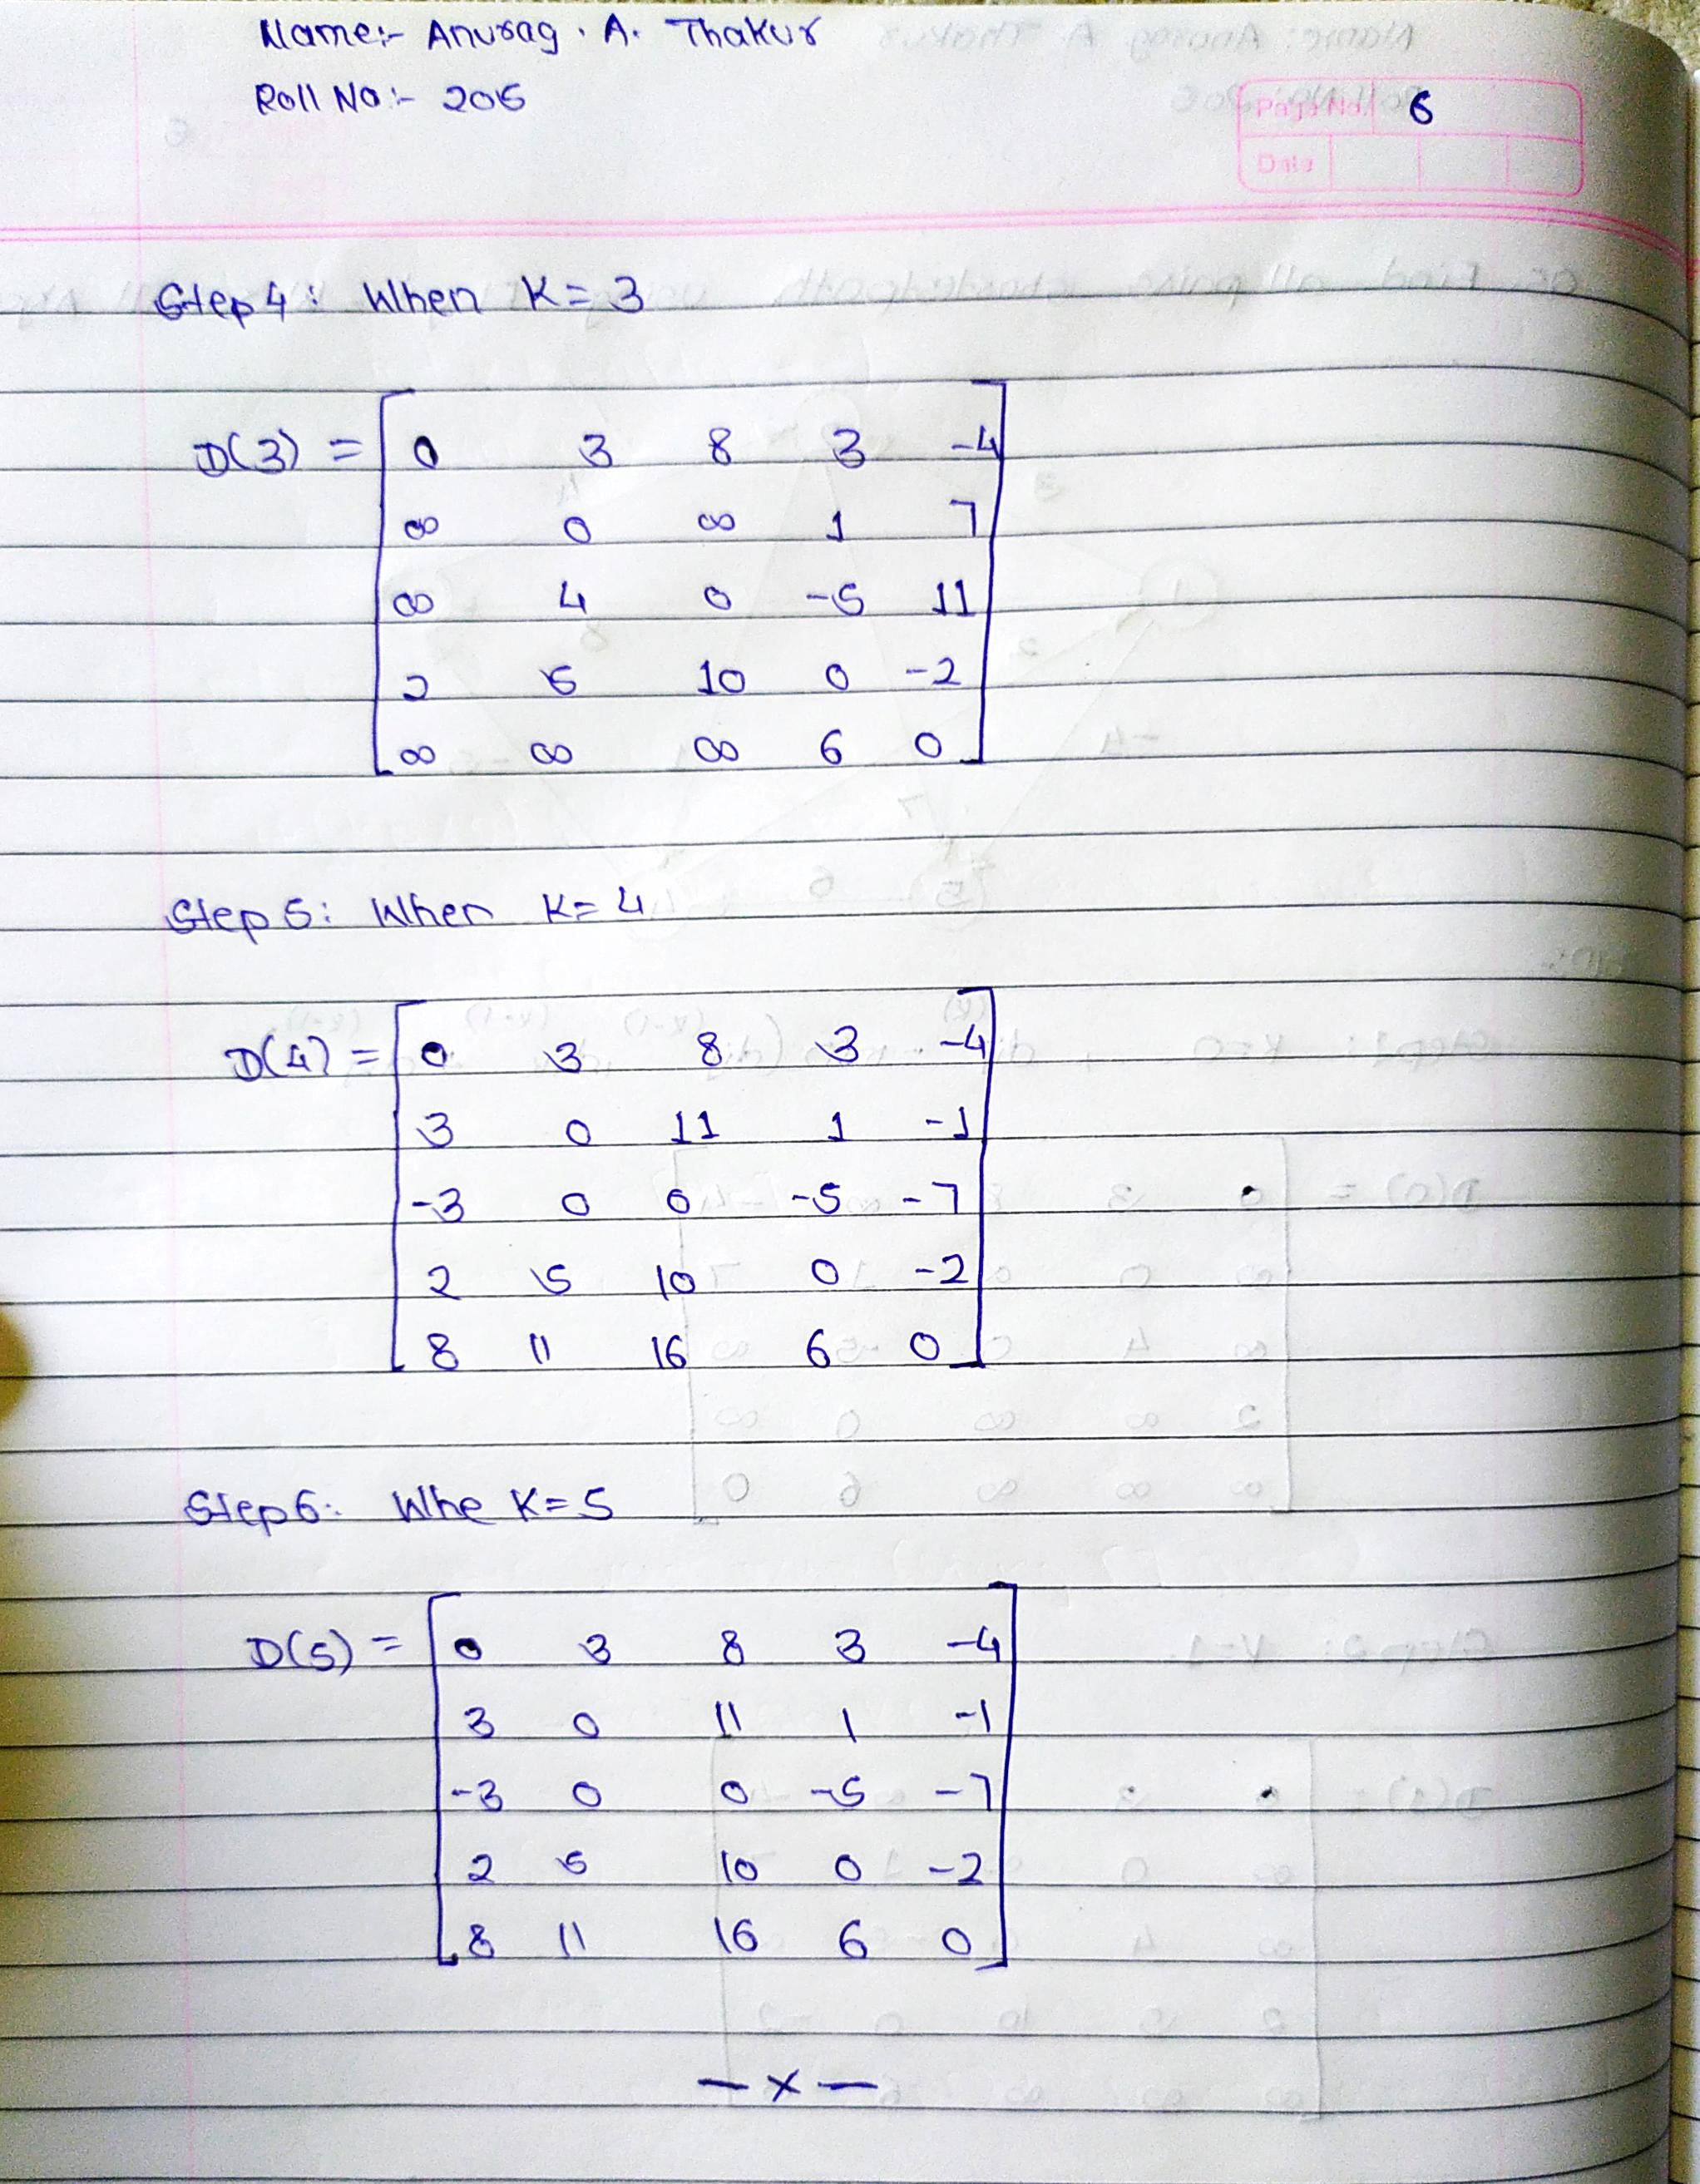 Name:- Anurag . A. Thakur
Roll No:- 206
Page No. 6
Date
Step 4: When K = 3
D(3) = 0 3 8 3 -4
∞ 0 ∞ 1 7
∞ 4 0 -5 11
2 5 10 0 -2
∞ ∞ ∞ 6 0
Step 5: When K = 4
D(4) = 0 3 8 3 -4
3 0 11 1 -1
-3 0 0 -5 -7
2 5 10 0 -2
8 11 16 6 0
Step 6: Whe K = 5
D(5) = 0 3 8 3 -4
3 0 11 1 -1
-3 0 0 -5 -7
2 5 10 0 -2
8 11 16 6 0
— x —